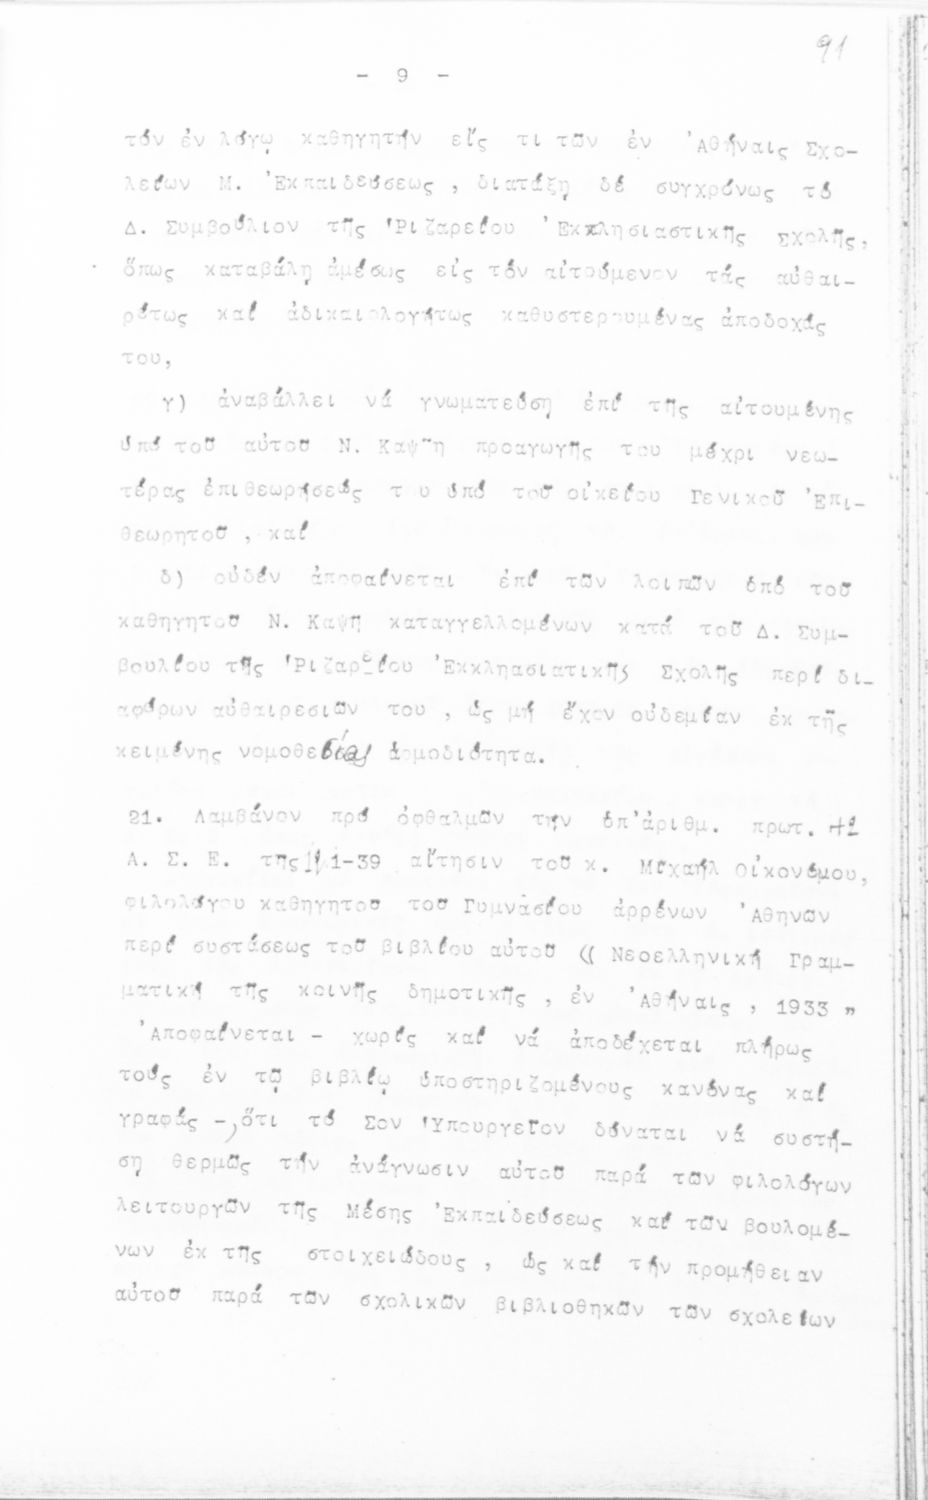 91
- 9 -
τόν ἐν λόγῳ καθηγητήν εἴς τι τῶν ἐν Ἀθήναις Σχο-
λείων Μ. Ἐκπαιδεύσεως , διατάξῃ δέ συγχρόνως τό
Δ. Συμβούλιον τῆς Ῥιζαρείου Ἐκκλησιαστικῆς Σχολῆς,
ὅπως καταβάλῃ ἀμέσως εἰς τόν αἰτούμενον τάς αὐθαι-
ρέτως καί ἀδικαιολογήτως καθυστερουμένας ἀποδοχάς
του,
γ) ἀναβάλλει νά γνωματεύσῃ ἐπί τῆς αἰτουμένης
ὑπό τοῦ αὐτοῦ Ν. Καψῆ προαγωγῆς του μέχρι νεω-
τέρας ἐπιθεωρήσεώς τ υ ὑπό τοῦ οἰκείου Γενικοῦ Ἐπι-
θεωρητοῦ , καί
δ) οὐδέν ἀποφαίνεται ἐπί τῶν λοιπῶν ὑπό τοῦ
καθηγητοῦ Ν. Καψῆ καταγγελλομένων κατά τοῦ Δ. Συμ-
βουλίου τῆς Ῥιζαρείου Ἐκκληασιατικῆς Σχολῆς περί δι-
αφόρων αὐθαιρεσιῶν του , ὡς μή ἔχον οὐδεμίαν ἐκ τῆς
κειμένης νομοθεσίας ἁρμοδιότητα.
21. Λαμβάνον πρό ὀφθαλμῶν τήν ὑπ'ἀριθμ. πρωτ.
Α. Σ. Ε. τῆς 1-39 αἴτησιν τοῦ κ. Μιχαήλ Οἰκονόμου,
φιλολόγου καθηγητοῦ τοῦ Γυμνασίου ἀρρένων Ἀθηνῶν
περί συστάσεως τοῦ βιβλίου αὐτοῦ (( Νεοελληνική Γραμ-
ματική τῆς κοινῆς δημοτικῆς , ἐν Ἀθήναις , 1933 "
Ἀποφαίνεται - χωρίς καί νά ἀποδέχεται πλήρως
τούς ἐν τῷ βιβλίῳ ὑποστηριζομένους κανόνας καί
γραφάς -, ὅτι τό Σον Ὑπουργεῖον δύναται νά συστή-
σῃ θερμῶς τήν ἀνάγνωσιν αὐτοῦ παρά τῶν φιλολόγων
λειτουργῶν τῆς Μέσης Ἐκπαιδεύσεως καί τῶν βουλομέ-
νων ἐκ τῆς στοιχειώδους , ὡς καί τήν προμήθειαν
αὐτοῦ παρά τῶν σχολικῶν βιβλιοθηκῶν τῶν σχολείων